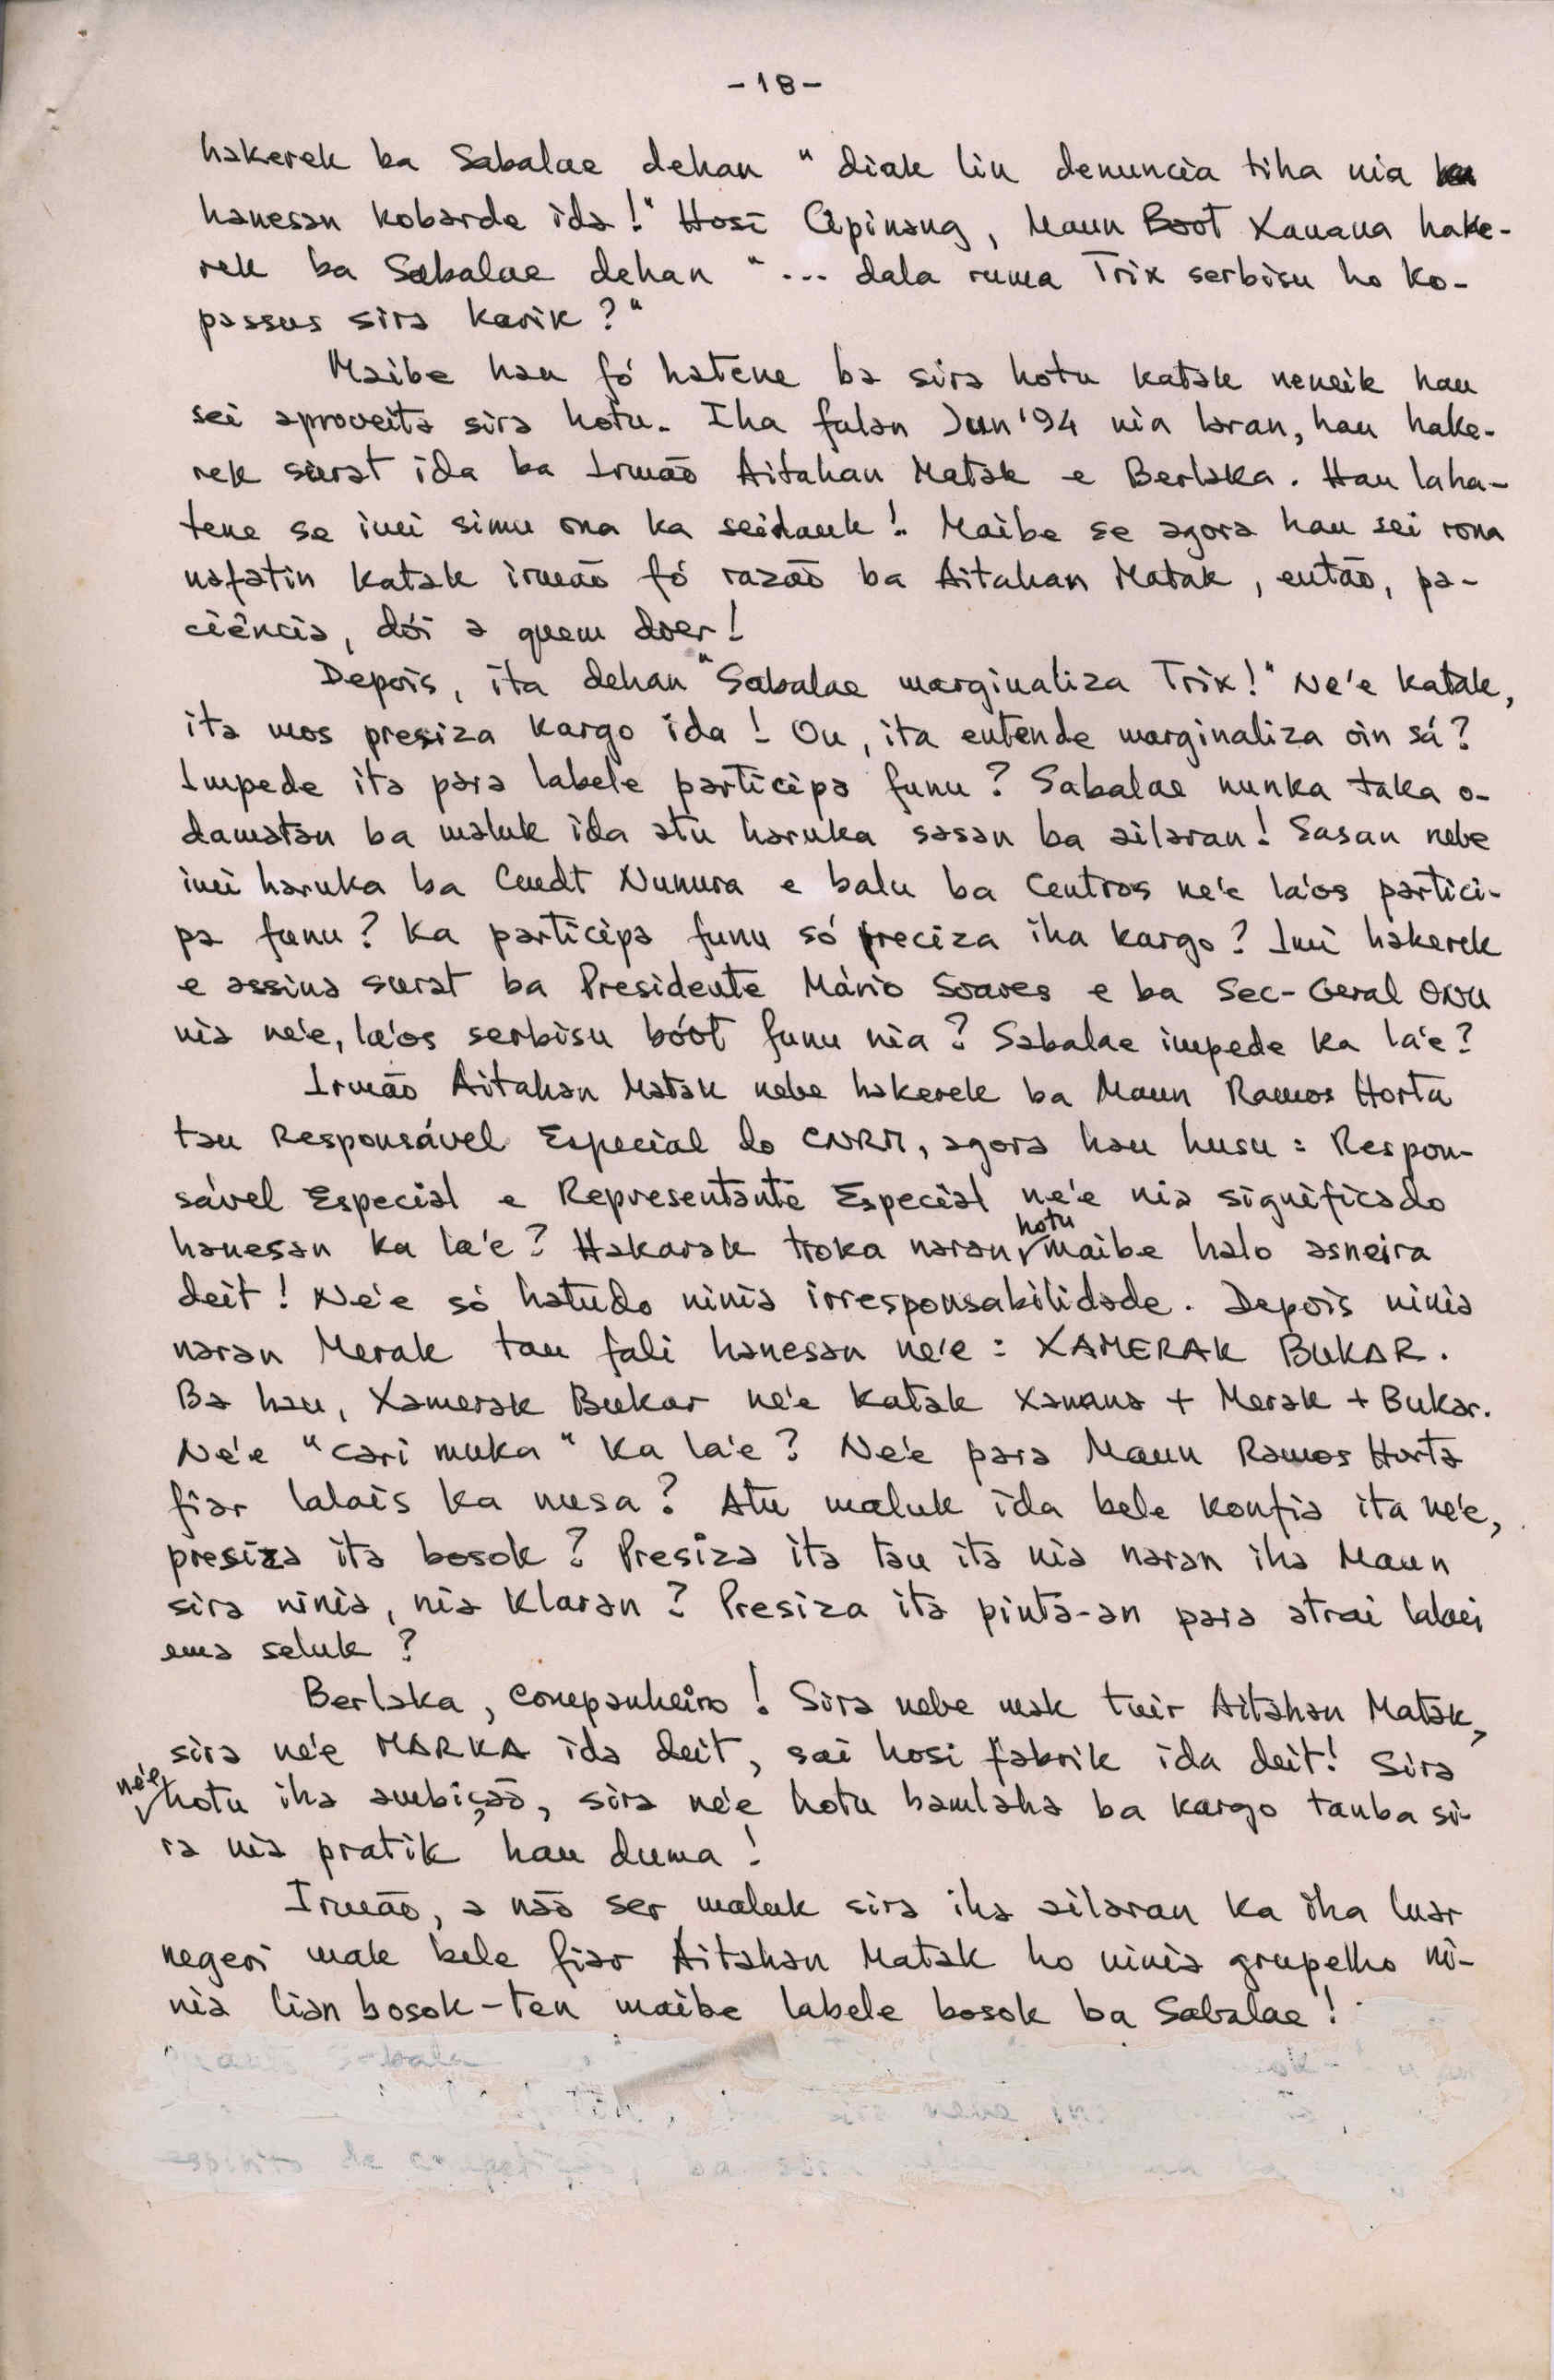 -18-
hakerek ba Sabalae dehan " diak liu denuncia tiha nia
hanesan kobarde ida!" Hosi Cipinang, Maun Boot Xanana hake-
rek ba Sabalae dehan "... dala ruma Trix serbisu ho ko-
passus sira karik?"
Maibe hau fó hatene ba sira hotu katak neneik hau
sei aproveita sira hotu. Iha fulan Jun '94 nia laran, hau hake-
rek surat ida ba Irmão Aitahan Matak e Berlaka. Hau laha-
tene se imi simu ona ka seidauk! Maibe se agora hau sei rona
nafatin katak irmão fó razão ba Aitahan Matak, então, pa-
ciência, dói a quem doer!
Depois, ita dehan "Sabalae marginaliza Trix!" Ne'e katak,
ita mos presiza kargo ida! Ou, ita entende marginaliza oin sá?
Impede ita para labele participa funu? Sabalae nunka taka o-
damatan ba maluk ida atu haruka sasan ba ailaran! Sasan nebe
imi haruka ba Cmdt Nunura e balu ba Centros ne'e la'os partici-
pa funu? Ka participa funu só preciza iha kargo? Imi hakerek
e assina surat ba Presidente Mário Soares e ba Sec-Geral ONU
nia ne'e, la'os serbisu bóot funu nia? Sabalae impede ka la'e?
Irmão Aitahan Matak nebe hakerek ba Maun Ramos Horta
tau Responsável Especial do CNRM, agora hau husu: Respon-
sável Especial e Representante Especial ne'e nia significado
hanesan ka la'e? Hakarak troka naran hotu maibe halo asneira
deit! Ne'e só hatudo ninia irresponsabilidade. Depois ninia
naran Merak tau fali hanesan ne'e: XAMERAK BUKAR.
Ba hau, Xamerak Bukar ne'e katak Xanana + Merak + Bukar.
Ne'e "cari muka" ka la'e? Ne'e para Maun Ramos Horta
fiar lalais ka nusa? Atu maluk ida bele konfia ita ne'e,
presiza ita bosok? Presiza ita tau ita nia naran iha Maun
sira ninia, nia klaran? Presiza ita pinta-an para atrai labei
ema seluk?
Berlaka, companheiro! Sira nebe mak tuir Aitahan Matak,
sira ne'e MARKA ida deit, sai hosi fabrik ida deit! Sira
ne'e hotu iha ambição, sira ne'e hotu hamlaha ba kargo tanba si-
ra nia pratik hau duma!
Irmão, a não ser maluk sira iha ailaran ka iha luar
negeri mak bele fiar Aitahan Matak ho ninia grupelho ni-
nia lian bosok-ten maibe labele bosok ba Sabalae!